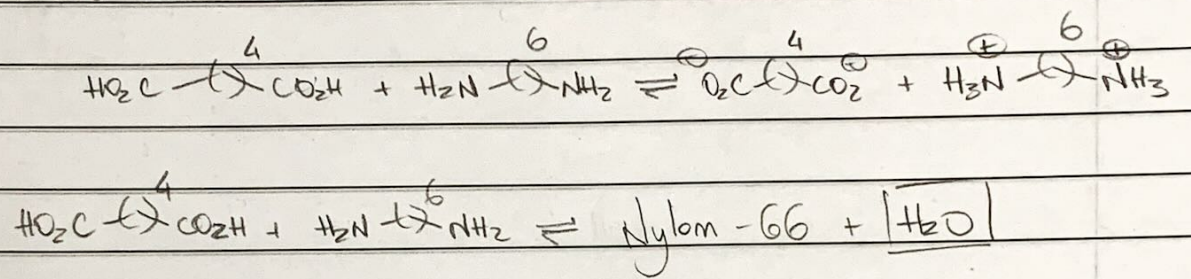 HO₂C-( )⁴-CO₂H + H₂N-( )⁶-NH₂ ⇌ ⊖O₂C-( )⁴-CO₂⊖ + H₃N⊕-( )⁶-N⊕H₃
HO₂C-( )⁴-CO₂H + H₂N-( )⁶-NH₂ ⇌ Nylon-66 + H₂O